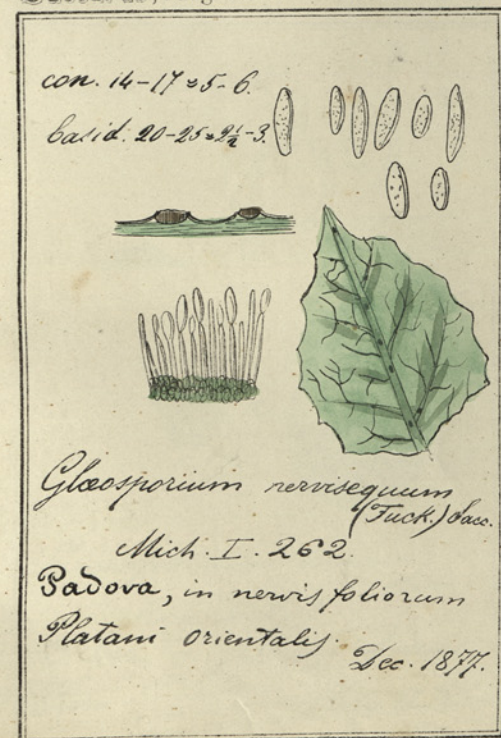 con. 14-17 ≈ 5-6.
basid. 20-25 ≈ 2½-3.
Glœosporium nervisequum
(Fuck.) Sacc.
Mich. I. 262.
Padova, in nervis foliorum
Platani orientalis.
Dec. 1877.